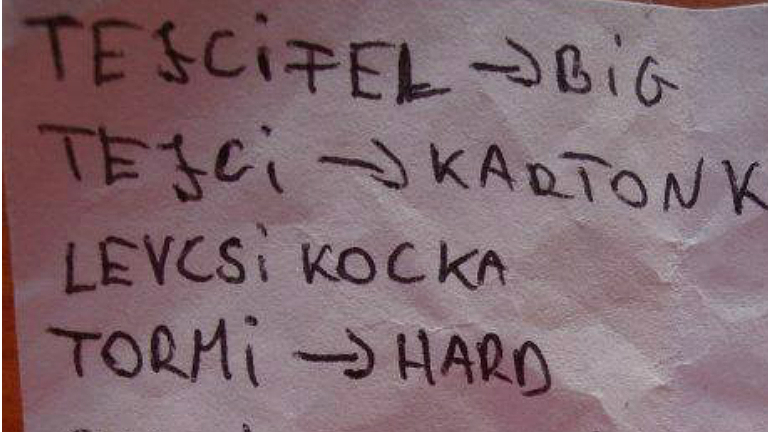 TEJCiFEL → BiG
TEJCi → KARTONK
LEVCSi KOCKA
TORMi → HARD